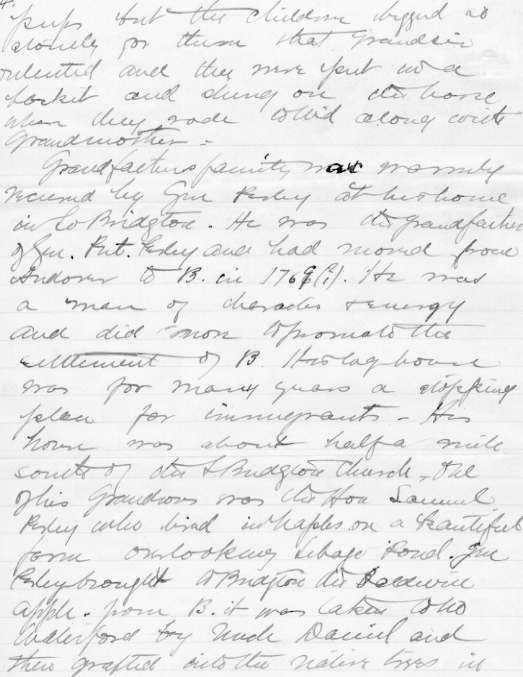 pups but the children begged so
closely for them that Grandsir
relented and they were put in a
basket and slung on the horse
when they rode to Wd along with
Grandmother -
Grandfather's family was warmly
received by Gen Perley at his home
in So Bridgton. He was the grandfather
of Gen. Put. Perley and had moved from
Andover to B. in 1769(?). He was
a man of character & energy
and did more to promote the
settlement of B His log house
was for many years a stopping
place for immigrants - His
house was about half a mile
south of the S Bridgton Church - One
of his Grandsons was the Hon Samuel
Perley who lived in Naples on a beautiful
farm overlooking Sebago Pond. Gen
Perley brought to Bridgton the Baldwin
apple. from B. it was taken to No
Waterford by Uncle Daniel and
then grafted into the native trees in